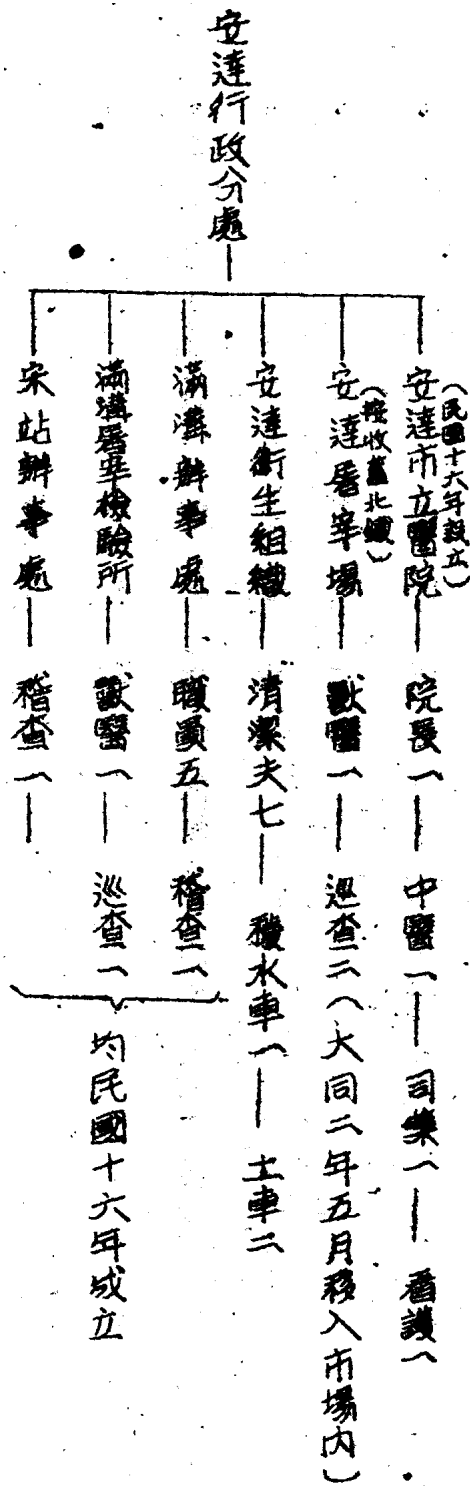 安達行政分處
安達市立醫院（民國十六年設立）—院長一—中醫一—司藥一—看護一
安達屠宰場（接收舊北鐵）—獸醫一—巡查二（大同二年五月移入市場內）
安達衛生組織—清潔夫七—穢水車一—土車二
滿溝辦事處—職員五—稽查一
滿溝屠宰檢驗所—獸醫一—巡查一
宋站辦事處—稽查一—
均民國十六年成立